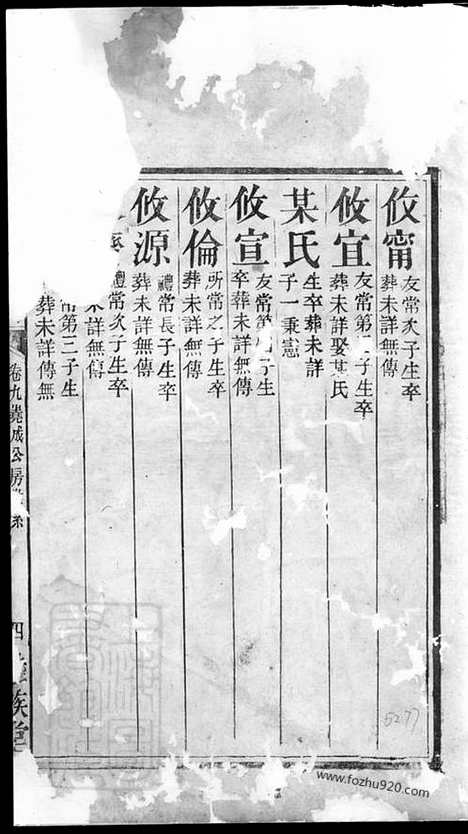 攸甯
友常次子生卒
葬未詳無傳
攸宜
友常第三子生卒
葬未詳娶某氏
某氏
生卒葬未詳
子一秉憲
攸宣
友常第 子生
卒葬未詳無傳
攸倫
所常之子生卒
葬未詳無傳
攸源
禮常長子生卒
葬未詳無傳
禮常次子生卒
未詳無傳
常第三子生
葬未詳傳無
卷九堯成公房
四
族
5277
www.fozhu920.com